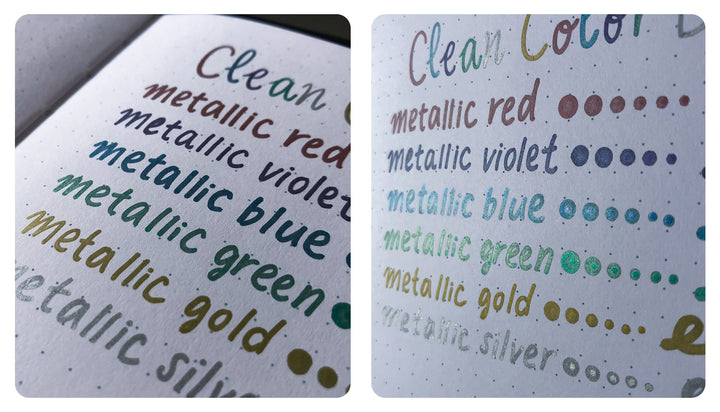 Clean C
metallic red
metallic violet
metallic blue
metallic green
metallic gold
metallic silver
Clean Color D
metallic red
metallic violet
metallic blue
metallic green
metallic gold
metallic silver